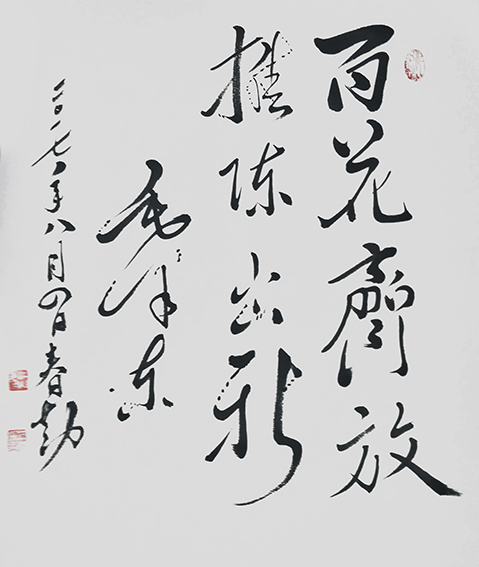 百花齊放
推陈出新
毛泽东
二〇一七年八月四日春勃